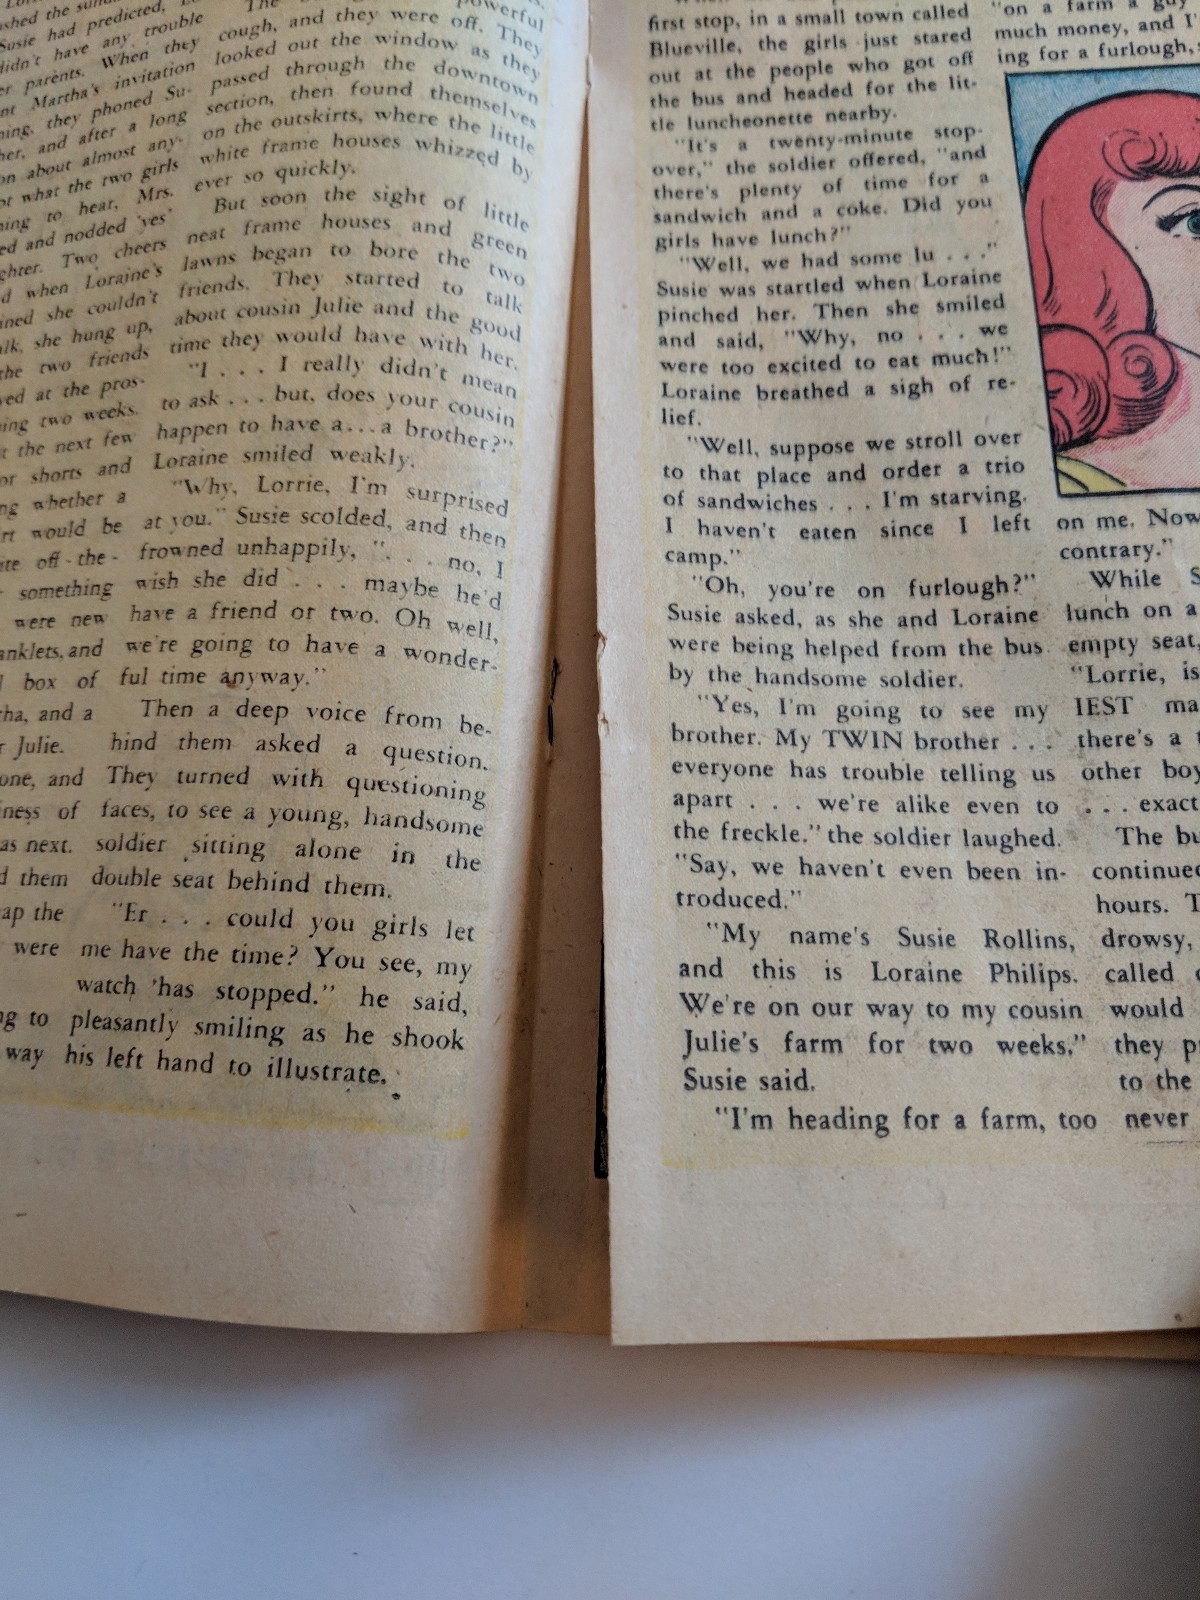 shed the
Susie had predicted,
didn't have any trouble
er parents. When they
nt Martha's invitation
ning, they phoned Su-
her, and after a long
on about almost any-
ot what the two girls
ning to hear, Mrs.
ed and nodded 'yes'
ghter. Two cheers
d when Loraine's
ined she couldn't
alk, she hung up,
the two friends
ved at the pros-
ning two weeks.
t the next few
or shorts and
ng whether a
rt would be
ite off-the-
r something
were new
anklets, and
l box of
tha, and a
r Julie.
one, and
iness of
as next.
d them
ap the
were
ng to
way
The
powerful
cough, and they were off. They
looked out the window as they
passed through the downtown
section, then found themselves
on the outskirts, where the little
white frame houses whizzed by
ever so quickly.
But soon the sight of little
neat frame houses and green
lawns began to bore the two
friends. They started to talk
about cousin Julie and the good
time they would have with her.
"I . . . I really didn't mean
to ask . . . but, does your cousin
happen to have a...a brother?"
Loraine smiled weakly.
"Why, Lorrie, I'm surprised
at you." Susie scolded, and then
frowned unhappily, ". . . no, I
wish she did . . . maybe he'd
have a friend or two. Oh well,
we're going to have a wonder-
ful time anyway."
Then a deep voice from be-
hind them asked a question.
They turned with questioning
faces, to see a young, handsome
soldier sitting alone in the
double seat behind them.
"Er . . . could you girls let
me have the time? You see, my
watch 'has stopped." he said,
pleasantly smiling as he shook
his left hand to illustrate.
first stop, in a small town called
Blueville, the girls just stared
out at the people who got off
the bus and headed for the lit-
tle luncheonette nearby.
"It's a twenty-minute stop-
over," the soldier offered, "and
there's plenty of time for a
sandwich and a coke. Did you
girls have lunch?"
"Well, we had some lu . . ."
Susie was startled when Loraine
pinched her. Then she smiled
and said, "Why, no . . . we
were too excited to eat much!"
Loraine breathed a sigh of re-
lief.
"Well, suppose we stroll over
to that place and order a trio
of sandwiches . . . I'm starving.
I haven't eaten since I left
camp."
"Oh, you're on furlough?"
Susie asked, as she and Loraine
were being helped from the bus
by the handsome soldier.
"Yes, I'm going to see my
brother. My TWIN brother . . .
everyone has trouble telling us
apart . . . we're alike even to
the freckle." the soldier laughed.
"Say, we haven't even been in-
troduced."
"My name's Susie Rollins,
and this is Loraine Philips.
We're on our way to my cousin
Julie's farm for two weeks,"
Susie said.
"I'm heading for a farm, too
"on a farm a guy
much money, and I'
ing for a furlough,
on me. Now
contrary."
While S
lunch on a
empty seat,
"Lorrie, is
IEST ma
there's a t
other boy
. . . exact
The bu
continued
hours. T
drowsy,
called
would
they p
to the
never